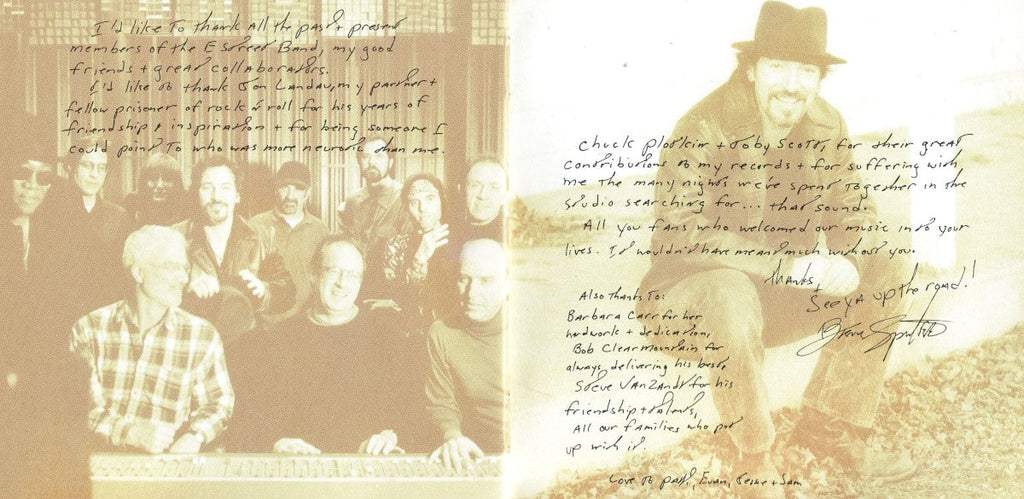 I'd like to thank all the past + present
members of the E Street Band, my good
friends + great collaborators.
I'd like to thank Jon Landau, my partner +
fellow prisoner of rock & roll for his years of
friendship & inspiration + for being someone I
could point to who was more neurotic than me.
Chuck Plotkin + Toby Scott, for their great
contributions to my records + for suffering with
me the many nights we've spent together in the
studio searching for... that sound.
All you fans who welcomed our music into your
lives. It wouldn't have meant much without you.
thanks,
+ See ya up the road!
Bruce Springsteen
Also thanks to:
Barbara Carr for her
hardwork + dedication,
Bob Clearmountain for
always delivering his best,
Steve VanZandt for his
friendship + talents,
All our families who put
up with it.
Love to Patti, Evan, Jesse + Sam